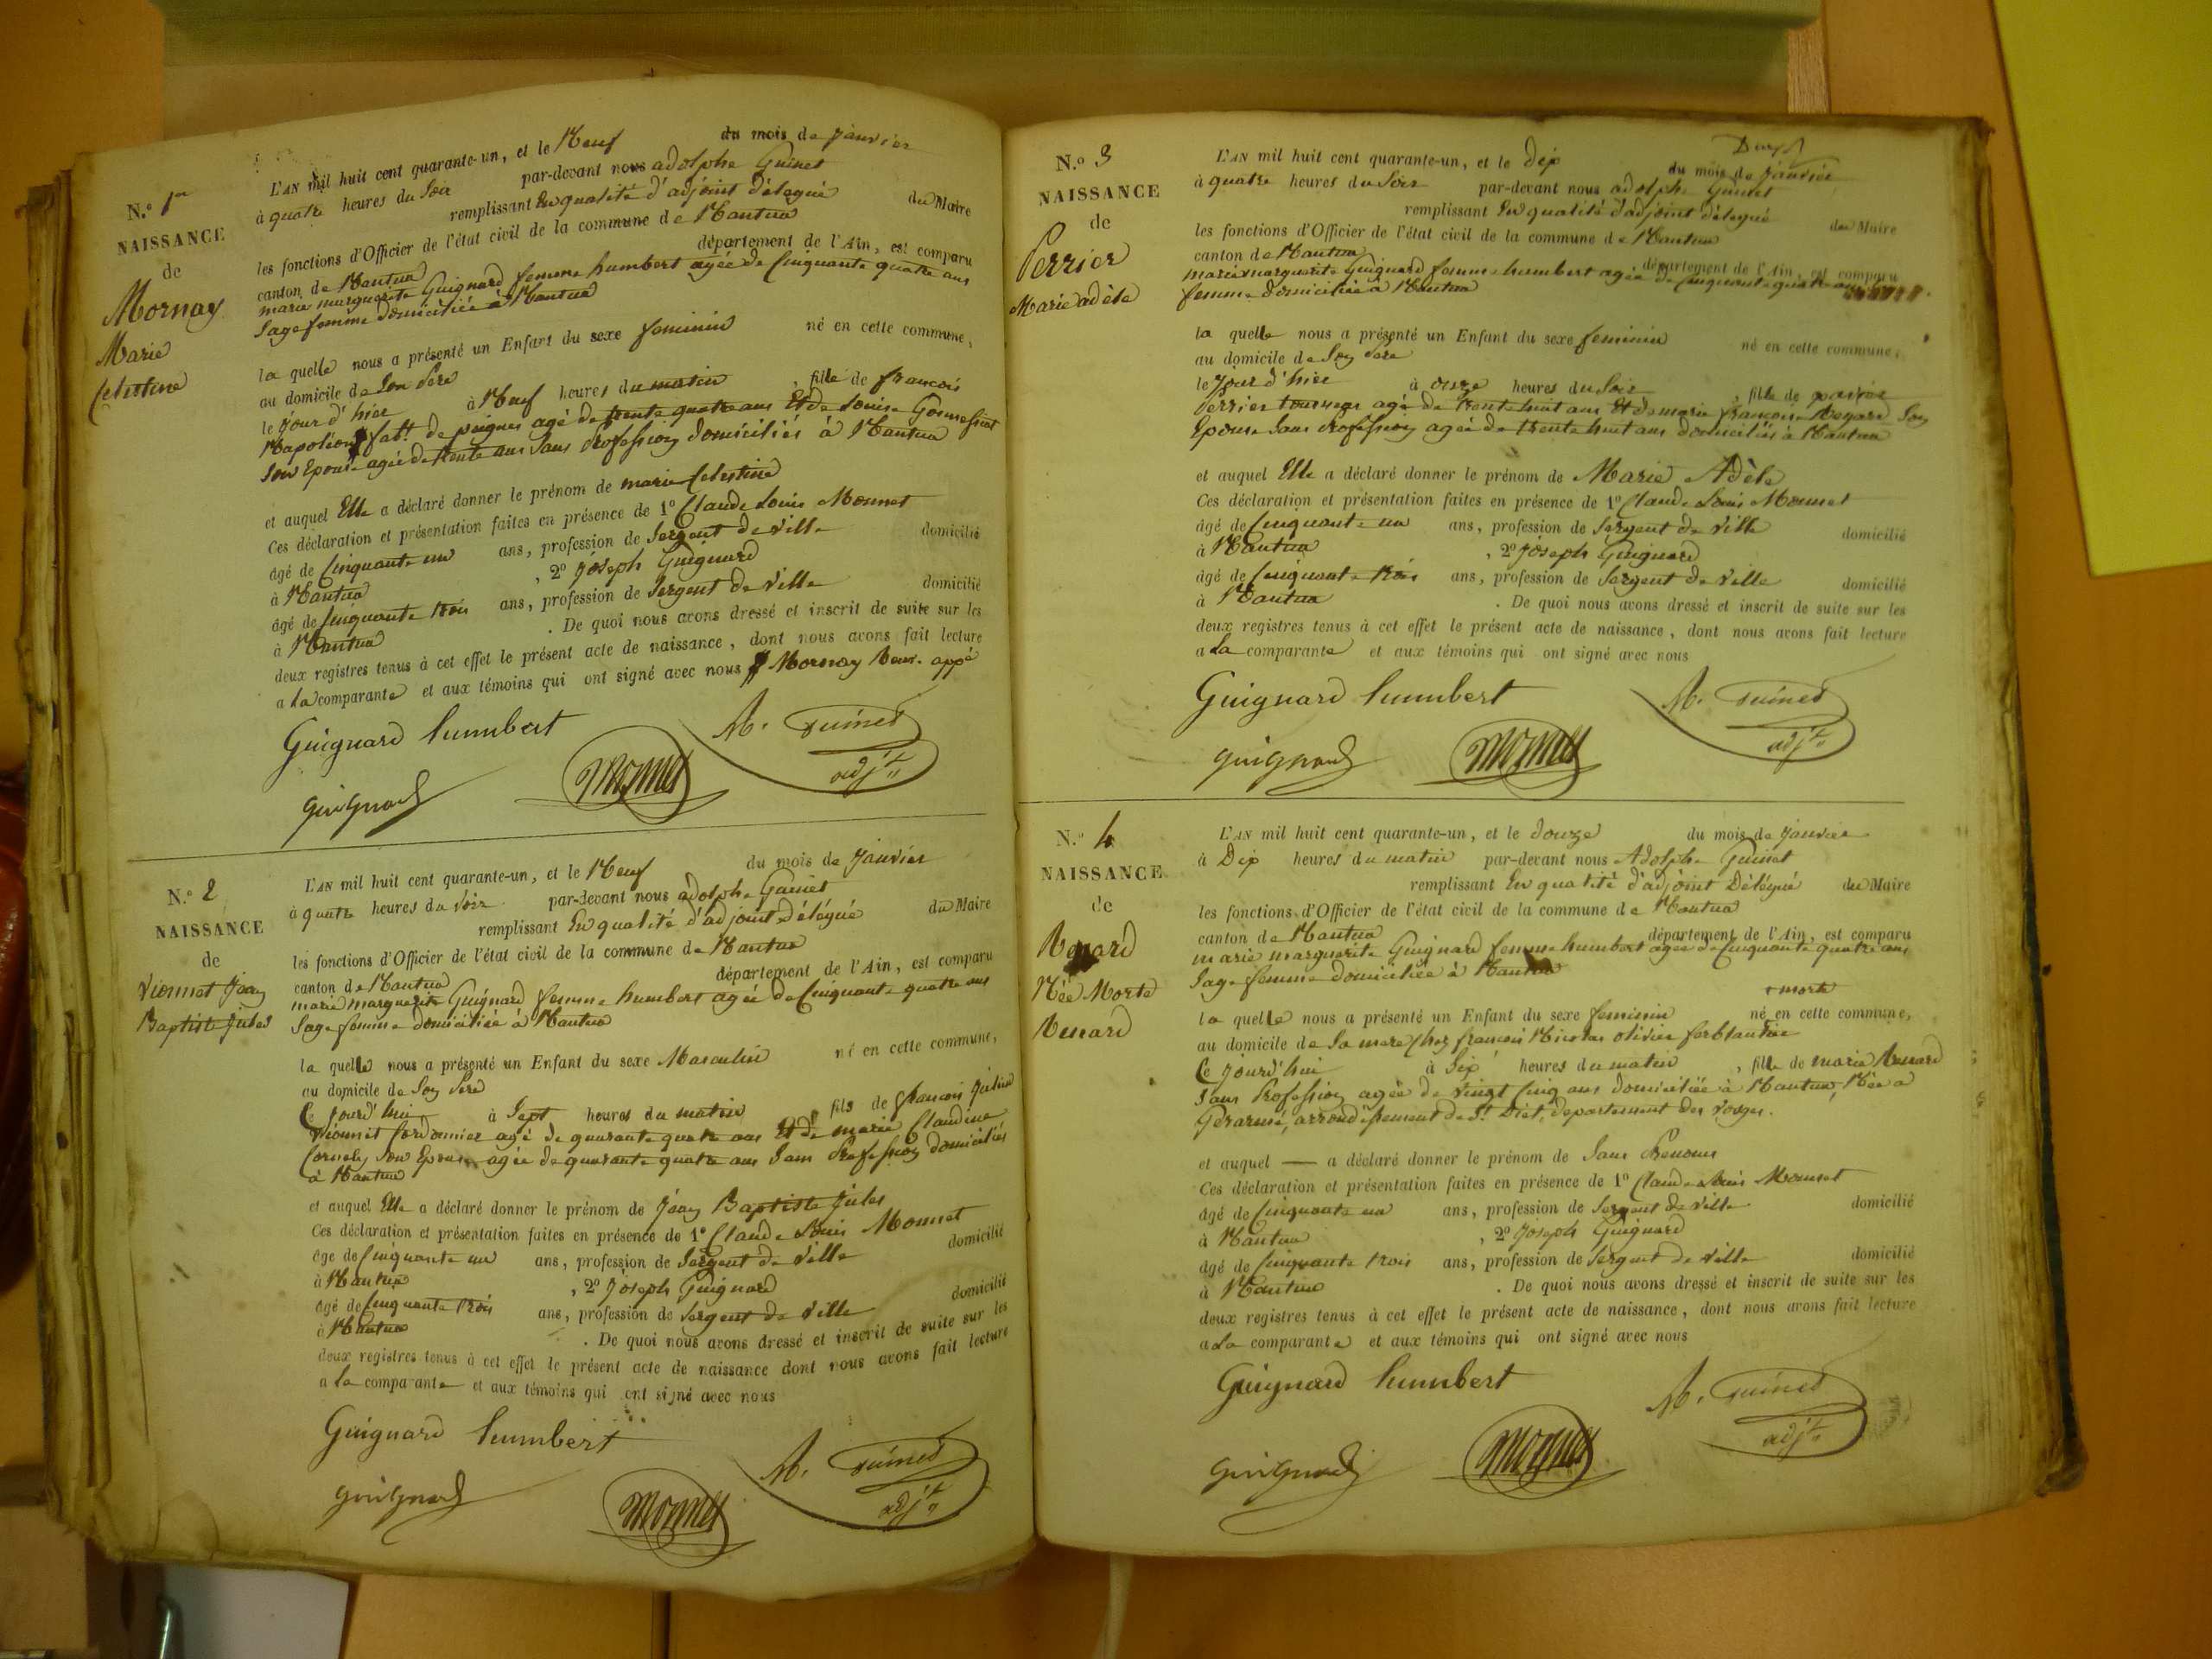 N.o 1er
NAISSANCE
de
Mornay
Marie
Celestine
L'AN mil huit cent quarante-un, et le Neuf du mois de janvier
à quatre heures du Soir par-devant nous adolphe Guinet
remplissant En qualité d'adjoint délégué du Maire
les fonctions d'Officier de l'état civil de la commune de Nantua
canton de Nantua département de l'Ain, est comparu
marie marguerite Guignard femme humbert agée de Cinquante quatre ans
Sage femme domiciliée à Nantua
la quelle nous a présenté un Enfant du sexe feminin né en cette commune,
au domicile de Son Père
le jour d'hier à Neuf heures du matin, fille de francois
Napoléon fabt. de peignes agé de trente quatre ans Et de Louise
Son Epouse agée de trente ans Sans Profession domiciliés à Nantua
et auquel Elle a déclaré donner le prénom de marie Celestine
Ces déclaration et présentation faites en présence de 1o Claude Louis Monnet
âgé de Cinquante un ans, profession de Sergent de ville domicilié
à Nantua, 2o Joseph Guignard
âgé de Cinquante trois ans, profession de Sergent de ville domicilié
à Nantua. De quoi nous avons dressé et inscrit de suite sur les
deux registres tenus à cet effet le présent acte de naissance, dont nous avons fait lecture
a La comparante et aux témoins qui ont signé avec nous Mornay
Guignard humbert A. Guinet
guignard Monnet adjt
N.o 2
NAISSANCE
de
Vionnet Jean
Baptiste Jules
L'AN mil huit cent quarante-un, et le Neuf du mois de janvier
à quatre heures du Soir par-devant nous adolphe Guinet
remplissant En qualité d'adjoint délégué du Maire
les fonctions d'Officier de l'état civil de la commune de Nantua
canton de Nantua département de l'Ain, est comparu
marie marguerite Guignard femme humbert agée de Cinquante quatre ans
Sage femme domiciliée à Nantua
la quelle nous a présenté un Enfant du sexe Masculin né en cette commune,
au domicile de Son Père
Ce jourd'hui à Sept heures du matin, fils de francois Julien
Vionnet Cordonnier agé de quarante quatre ans Et de marie Claudine
Son Epouse agée de quarante quatre ans Sans Profession domiciliés
à Nantua
et auquel Elle a déclaré donner le prénom de Jean Baptiste Jules
Ces déclaration et présentation faites en présence de 1o Claude Louis Monnet
âgé de Cinquante un ans, profession de Sergent de ville domicilié
à Nantua, 2o Joseph Guignard
âgé de Cinquante trois ans, profession de Sergent de ville domicilié
à Nantua. De quoi nous avons dressé et inscrit de suite sur les
deux registres tenus à cet effet le présent acte de naissance dont nous avons fait lecture
a la comparante et aux témoins qui ont signé avec nous
Guignard humbert A. Guinet
guignard Monnet adjt
N.o 3
NAISSANCE
de
Perrier
Marie adèle
L'AN mil huit cent quarante-un, et le dix du mois de janvier
à quatre heures du Soir par-devant nous adolphe Guinet
remplissant En qualité d'adjoint délégué du Maire
les fonctions d'Officier de l'état civil de la commune de Nantua
canton de Nantua département de l'Ain, est comparu
marie marguerite Guignard femme humbert agée de Cinquante quatre ans
femme domiciliée à Nantua
la quelle nous a présenté un Enfant du sexe feminin né en cette commune,
au domicile de Son Père
le jour d'hier à onze heures du Soir, fille de
Perrier tourneur agé de trente huit ans Et de marie francoise Son
Epouse Sans Profession agée de trente huit ans domiciliés à Nantua
et auquel Elle a déclaré donner le prénom de Marie Adèle
Ces déclaration et présentation faites en présence de 1o Claude Louis Monnet
âgé de Cinquante un ans, profession de Sergent de ville domicilié
à Nantua, 2o Joseph Guignard
âgé de Cinquante trois ans, profession de Sergent de ville domicilié
à Nantua. De quoi nous avons dressé et inscrit de suite sur les
deux registres tenus à cet effet le présent acte de naissance, dont nous avons fait lecture
a La comparante et aux témoins qui ont signé avec nous
Guignard humbert A. Guinet
guignard Monnet adjt
N.o 4
NAISSANCE
de
Renard
Née Morte
Renard
L'AN mil huit cent quarante-un, et le douze du mois de janvier
à Dix heures du matin par-devant nous Adolphe Guinet
remplissant En qualité d'adjoint Délégué du Maire
les fonctions d'Officier de l'état civil de la commune de Nantua
canton de Nantua département de l'Ain, est comparu
marie marguerite Guignard femme humbert agée de Cinquante quatre ans
Sage femme domiciliée à Nantua
morte
la quelle nous a présenté un Enfant du sexe feminin né en cette commune,
au domicile de Sa mere Chez francois Nicolas olivier ferblantier
Ce jourd'hui à Six heures du matin, fille de marie Renard
Sans Profession agée de vingt Cinq ans domiciliée à Nantua, Née a
Gerarmé, arrondissement de St. Diet, departement des vosges.
et auquel — a déclaré donner le prénom de Sans Prenoms
Ces déclaration et présentation faites en présence de 1o Claude Louis Monnet
âgé de Cinquante un ans, profession de Sergent de ville domicilié
à Nantua, 2o Joseph Guignard
âgé de Cinquante trois ans, profession de Sergent de ville domicilié
à Nantua. De quoi nous avons dressé et inscrit de suite sur les
deux registres tenus à cet effet le présent acte de naissance, dont nous avons fait lecture
a La comparante et aux témoins qui ont signé avec nous
Guignard humbert A. Guinet
guignard Monnet adjt